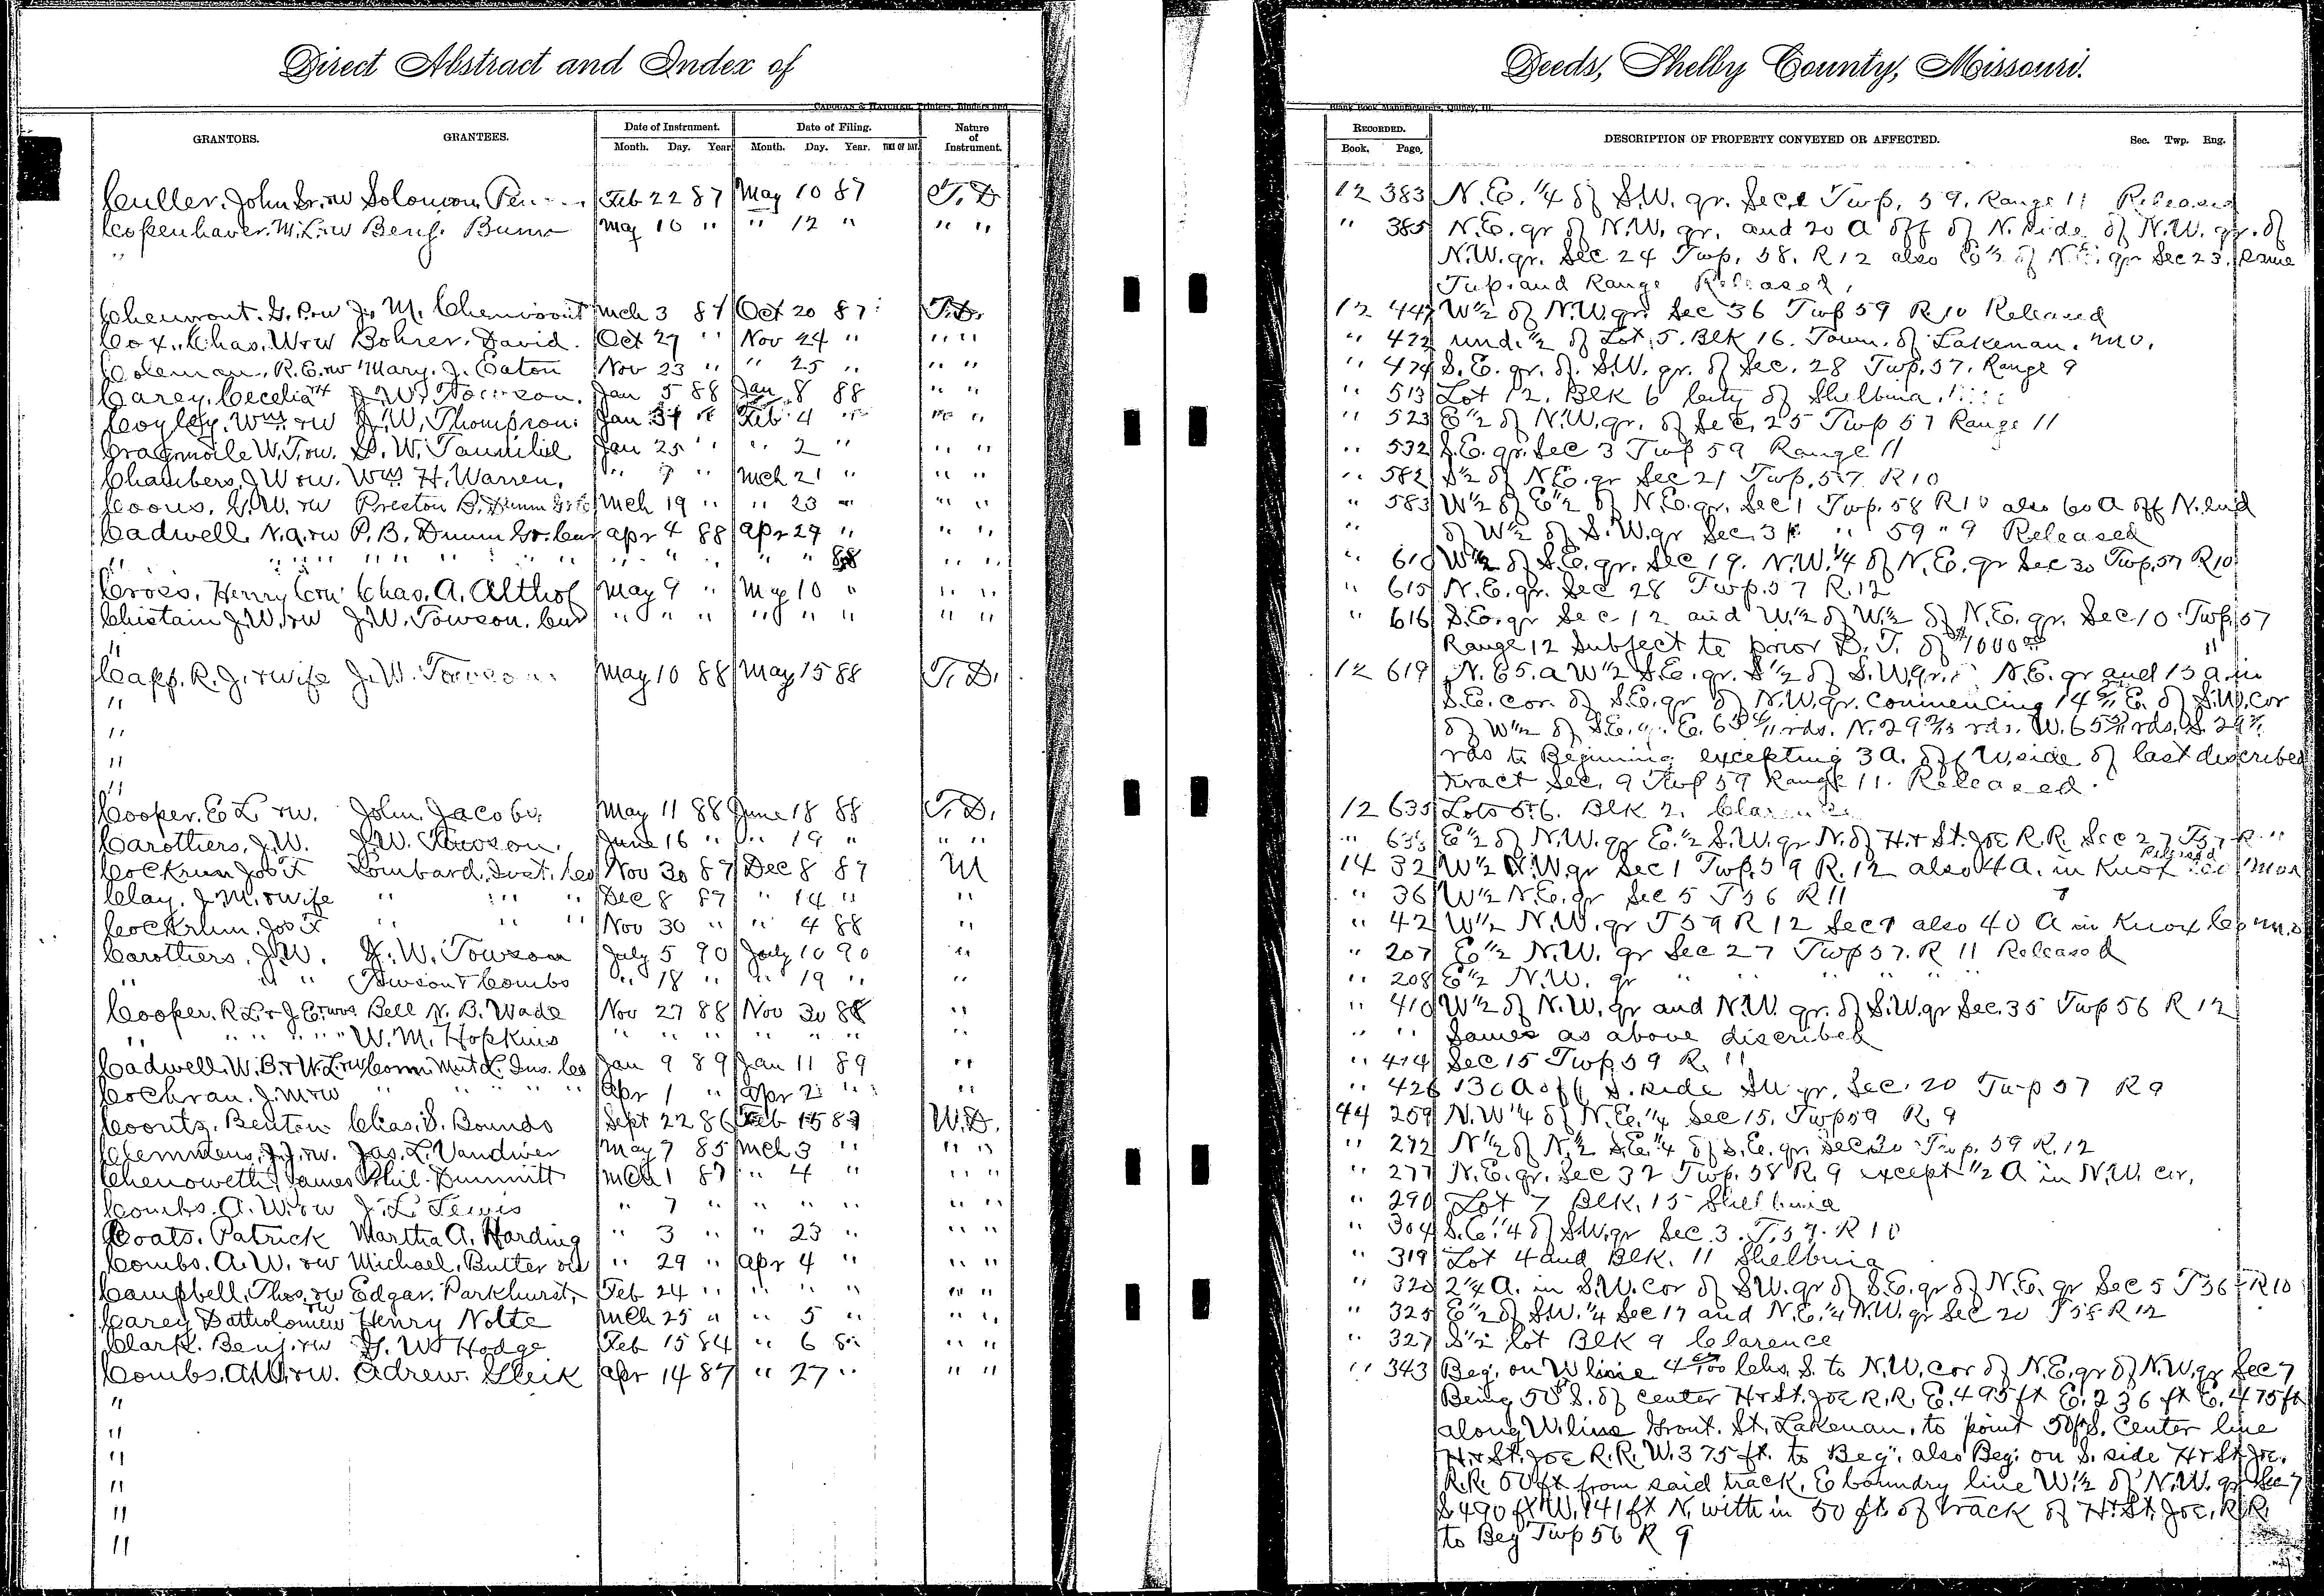 Direct Abstract and Index of
Deeds, Shelby County, Missouri.
CADOGAN & HATCHER, Printers, Binders and
Blank Book Manufacturers, Quincy, Ill.
GRANTORS. GRANTEES. Date of Instrument. Month. Day. Year. Date of Filing. Month. Day. Year. TIME OF DAY. Nature of Instrument.
RECORDED. Book. Page. DESCRIPTION OF PROPERTY CONVEYED OR AFFECTED. Sec. Twp. Rng.
Culler. John Sr. rw Solomon Feb 22 87 May 10 87 T. D 12 383 N.E. 1/4 of S.W. qr. Sec 1 Twp. 59. Range 11 Released
Copenhaver. M.L. rw Benj. May 10 " " 12 " " " " 385 N.E. qr of N.W. qr. and 20 A off of N. side of N.W. qr. of
" N.W. qr. Sec 24 Twp. 58. R 12 also E 1/2 of N.E. qr Sec 23. same
Twp. and Range Released.
Chenwont. G. P. rw J. M. Mch 3 87 Oct 20 87 T.D. 12 447 W 1/2 of N.W. qr. Sec 36 Twp 59 R 10 Released
Cox. Chas. W rw Bohrer. David. Oct 27 " Nov 24 " " " " 472 und. 1/2 of Lot 5. Blk 16. Town. of Lakenan. Mo.
Coleman. R.E. rw Mary. J. Eaton Nov 23 " " 25 " " " " 474 S.E. qr. of S.W. qr. of Sec. 28 Twp. 57. Range 9
Carey. Cecelia J.W. Towson. Jan 5 88 Jan 8 88 " " " 513 Lot 12. Blk 6 City of Shelbina
Coyley. Wm. rw J.W. Thompson. Jan 31 " Feb 4 " " " " 523 E 1/2 of N.W. qr. of Sec. 25 Twp 57 Range 11
W.T. rw. W. Jan 25 " " 2 " " " " 532 S.E. qr. Sec 3 Twp 59 Range 11
Chambers. J W rw. Wm H. Warren. " 7 " Mch 21 " " " " 582 S 1/2 of N.E. qr Sec 21 Twp. 57 R10
Coons. G.W. rw Preston B. Dunn Mch 19 " " 23 " " " " 583 W 1/2 of E 1/2 of N.E. qr. Sec 1 Twp. 58 R10 also 60 A off N. End
Cadwell. N.A. rw P. B. Dunn Gr. Cur Apr 4 88 Apr 27 " " " " of W 1/2 of S.W. qr Sec. 31 " 59 " 9 Released
" " " " " " " " " " " " 88 " " " 610 W 1/2 of S.E. qr. Sec 19. N.W. 1/4 of N.E. qr Sec 30 Twp. 57 R10
Cross. Henry C rw Chas. A. Althof May 9 " May 10 " " " " 615 N.E. qr. Sec 28 Twp. 57 R. 12
Chistain J.W. rw J.W. Towson. Cur " " " " " " " " " 616 S.E. qr Sec 12 and W. 1/2 of W 1/2 of N.E. qr. Sec 10 Twp. 57
" Range 12 Subject to prior D. T. of $1000.00
Capp. R. J. rwife J.W. May 10 88 May 15 88 T. D. 12 619 N. 65. a W 1/2 S.E. qr. S 1/2 of S.W. qr. N.E. qr and 15 a. in
" S.E. cor. of S.E. qr of N.W. qr. Commencing 14 E. of S.W. cor
" of W 1/2 of S.E. E. 65 rds. N. 29 rds. W. 65 rds. S. 29
" rds to Beginning excepting 3 A. off W side of last discribed
" tract Sec. 9 Twp 59 Range 11. Released.
Cooper. E L rw. John. Jacoby. May 11 88 June 18 88 T. D. 12 635 Lots 5.6. Blk 2.
Carothers. J.W. J.W. Towson. June 16 " " 19 " " " " E 1/2 of N.W. qr E. 1/2 S.W. qr N. of H & St. Joe R.R. Sec 27 T57 R 11
Cockrum Jos T Lombard. Ivst. Co Nov 30 87 Dec 8 87 M 14 32 W 1/2 N.W. qr Sec 1 Twp. 59 R. 12 also 4 A. in Knox Co Mo Released
Clay. J M. rwife " " " Dec 8 87 " 14 " " " 36 W 1/2 N.E. qr Sec 5 T56 R11
Cockrum. Jos T " " " Nov 30 " " 4 88 " " 42 W 1/2 N.W. qr T59 R 12 Sec 1 also 40 A in Knox Co Mo
Carothers. J.W. J.W. Towson July 5 90 July 10 90 " " 207 E 1/2 N.W. qr Sec 27 Twp 57. R 11 Released
" " " Towson & Combs " 18 " " 19 " " " 208 E 1/2 N.W. qr " " " "
Cooper. R.L. & J.E. rws Bell N. B. Wade Nov 27 88 Nov 30 88 " " 410 W 1/2 of N.W. qr and N.W. qr. of S.W. qr Sec. 35 Twp 56 R 12
" " " " " W. M. Hopkins " " " " " " " " " Same as above discribed
Cadwell. W.B. & W.L. rw Conn Mut L. Ins. Co Jan 9 89 Jan 11 89 " " 414 Sec 15 Twp. 59 R. 11
Cochran. J. M rw " " " " Apr 1 " Apr 2 " " " 426 130 A off S. side S W qr. Sec. 20 Twp 57 R9
Coontz. Benton Chas. S. Bounds Sept 22 86 Feb 15 87 W.D. 44 259 N.W 1/4 of N.E. 1/4 Sec 15. Twp 59 R. 9
Clemmens. J.J. rw. Jas. L. Vandiver May 7 85 Mch 3 " " " " 272 N 1/2 of N 1/2 S.E. 1/4 of S.E. qr. Sec 30 Twp. 59 R. 12
Chenoweth James Phil. Dimmitt Mch 1 87 " 4 " " " " 277 N.E. qr. Sec 32 Twp. 58 R. 9 except 1/2 A in N.W. cor.
Combs. A. W. rw J. L. Lewis " 7 " " " " " " " 290 Lot 7 Blk. 15 Shelbina
Coats. Patrick Martha A. Harding " 3 " " 23 " " " " 304 S.E. 1/4 of S.W. qr Sec. 3. T. 57. R 10
Combs. A. W. rw Michael. Butter " 29 " Apr 4 " " " " 319 Lot 4 and Blk. 11 Shelbina
Campbell. Thos. rw Edgar. Parkhurst. Feb 24 " " " " " " " 320 2 1/4 A. in S.W. cor of S.W. qr of S.E. qr of N.E. qr Sec 5 T56 R10
Carey Batholomew rw Henry Nolte Mch 25 " " 5 " " " " 325 E 1/2 of S.W. 1/4 Sec 17 and N.E. 1/4 N.W. qr Sec 20 T58 R12
Clark. Benj. rw W Hodge Feb 15 84 " 6 " " " 327 S 1/2 lot Blk 9 Clarence
Combs. A.W. rw. Adrew. Sleik Apr 14 87 " 27 " " " " 343 Beg. on W line S. to N.W. cor of N.E. qr of N.W. qr Sec 7
" Being 50 ft S. of center H & St. Joe R.R. E. 495 ft E. 236 ft E. 475 ft
" along W. line Front. St. Lakenan. to point 50 ft S. Center line
" H. & St. Joe R.R. W. 375 ft. to Beg. also Beg. on S. side H & St. Joe.
" R.R. 50 ft from said track. E boundry line W 1/2 of N.W. qr Sec 7
" S 490 ft W. 141 ft N. with in 50 ft of track of H. & St. Joe. R.R.
" to Beg Twp 56 R 9